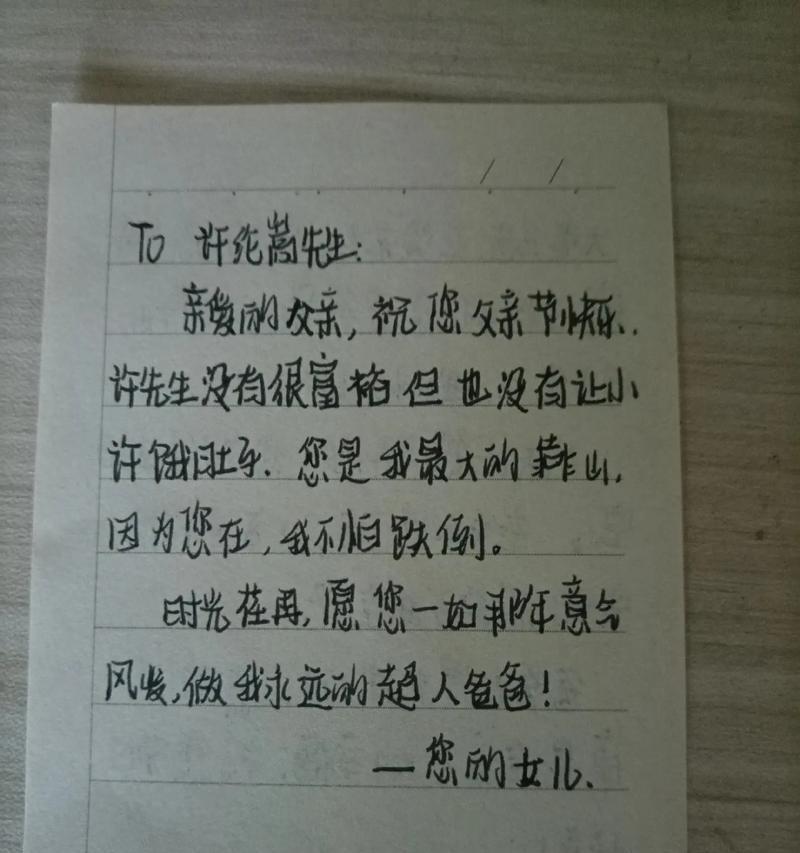 To 许纶嵩先生:
亲爱的父亲,祝您父亲节快乐.
许先生没有很富裕但也没有让小
许饿肚子.您是我最大的靠山,
因为您在,我不怕跌倒。
时光荏苒,愿您一如那年意气
风发,做我永远的超人爸爸!
—您的女儿.